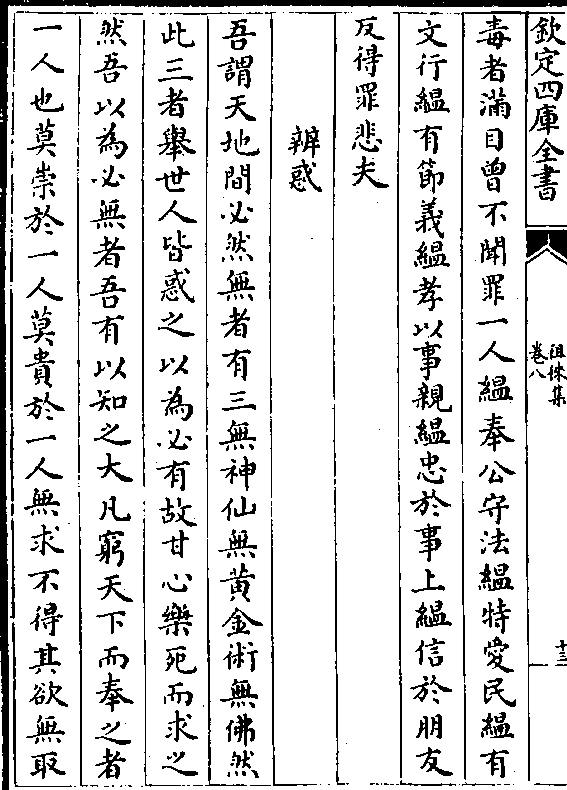 欽定四庫全書
徂徠集
卷八
十三
毒者滿目曾不聞罪一人緼奉公守法緼特愛民緼有
文行緼有節義緼孝以事親緼忠於事上緼信於朋友
反得罪悲夫
辨惑
吾謂天地間必然無者有三無神仙無黄金術無佛然
此三者舉世人皆惑之以為必有故甘心樂死而求之
然吾以為必無者吾有以知之大凡窮天下而奉之者
一人也莫崇於一人莫貴於一人無求不得其欲無取